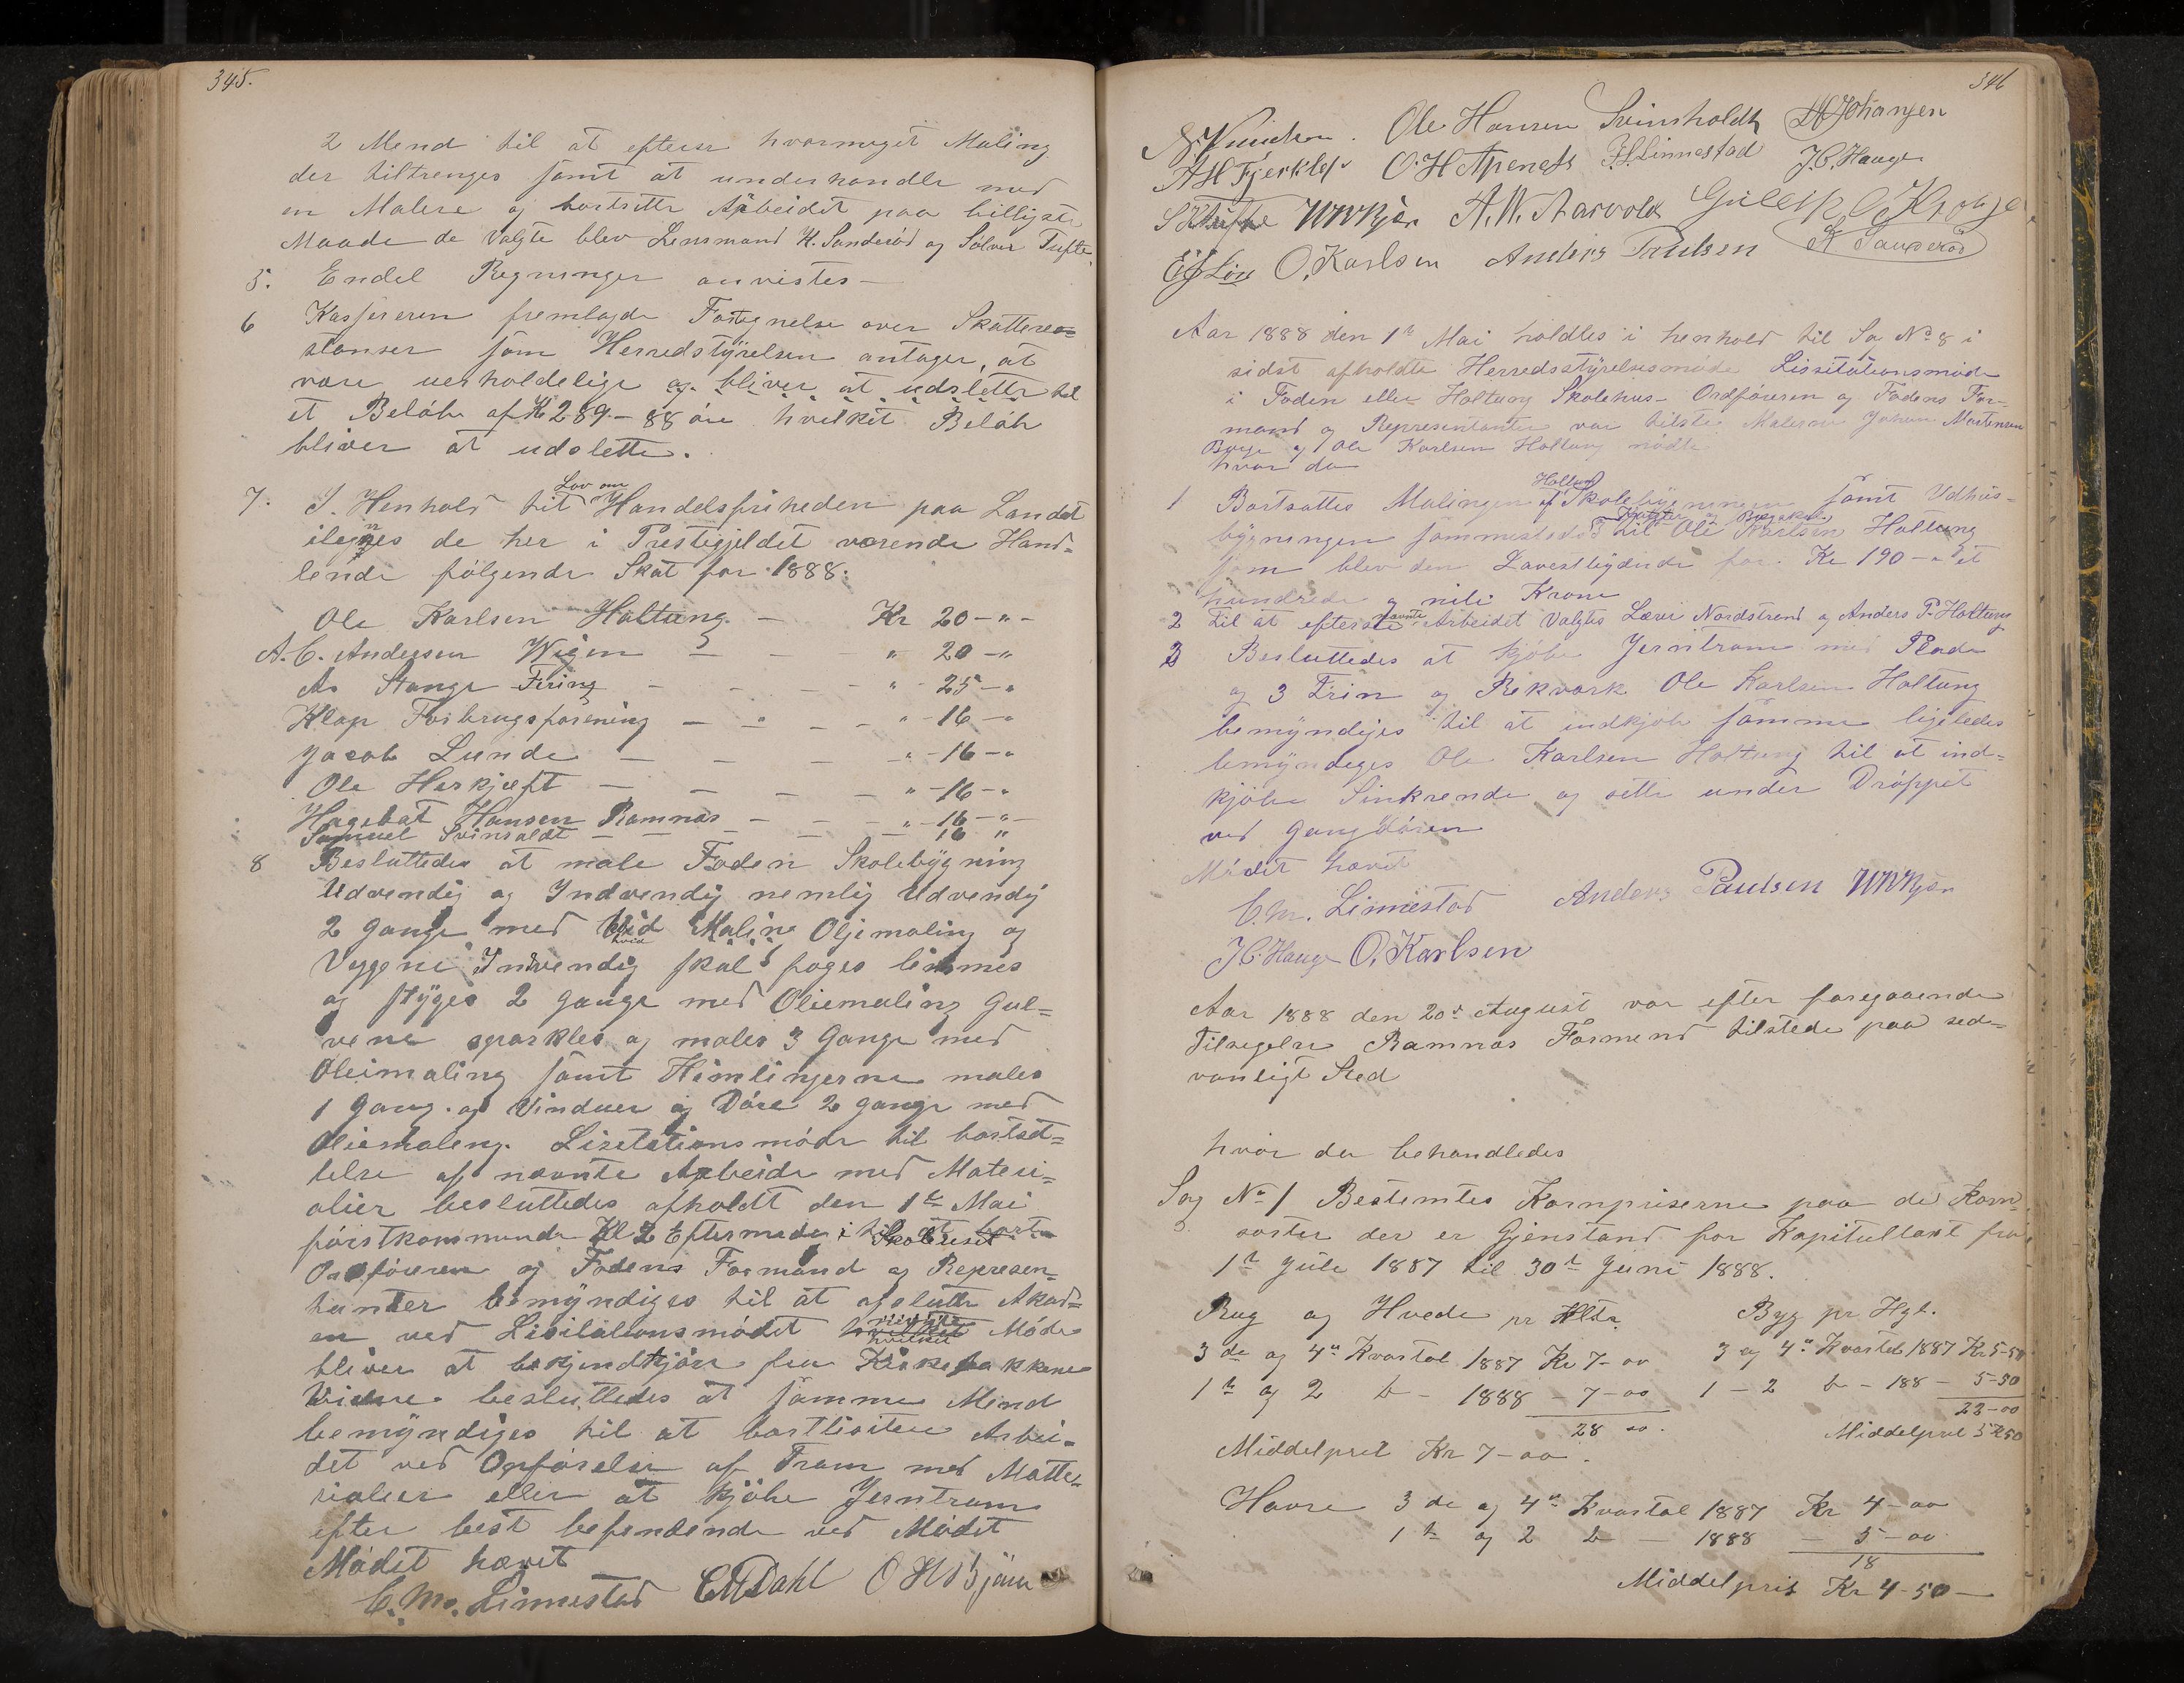 345.
2 Mend til at efterse hvormeget Maling
der tiltrenges samt at underhandle med
en Malere og bortsette Arbeidet paa billigste
Maade de valgte blev Lensmand K. Sanderød og Sølver Tufte
5. Endel Regninger anvistes –
6 Kassereren fremlagde Fortegnelse over Skattere=
stanser som Herredstyrelsen antager, at
være uerholdelige og bliver at udslette til
et Beløb af Kr 289.– 88 øre hvilket Beløb
bliver at udslette.
7. I Henhold til Lov om Handelsfriheden paa Landet
ilegnes de her i Prestegjeldet værende Hand=
lende følgende Skat for 1888.
Ole Karlsen Holtung – Kr 20 – " –
A. C. Andersen Wigen – – – " 20 – "
As Stange Firing – – – " 25 – "
Klop Forbrugsforening – " – – " – 16 – "
Jacob Lunde – – – – " – 16 – "
Ole Herkjæft – – – – " – 16 – "
Hagebat Hansen Ramnæs – – – " – 16 – " –
Samuel Svinsoldt – – – – – 16 "
8 Besluttedes at male Foden Skolebygning
Udvendig og Indvendig nemlig Udvendig
2 gange med hvid Maling Oljemaling og
Veggene Indvendig skal foges limmes
og stryges 2 gange med Oliemaling Gul=
vene sparkles og males 3 Gange med
Oleimaling samt Himlingerne males
1 Gang og Vinduer og Døre 2 gange med
Oliemaling. Lisetationsmøde til bortset=
telse af nævnte Arbeide med Materi=
alier besluttedes afholdt den 1te Mai
førstkommende Kl 2 Eftermedag i Skolhuset
Ordføreren og Fodens Formand og Represen=
tanter bemyndiges til at afslutte Akord=
en ved Lisitationsmødet hvilket Møde
bliver at bekjendtgjøre fra Kirkebakkene
Videre besluttedes at samme Mend
bemyndiges til at bortlisitere Arbei=
det ved Opførelse af Tram med Matte=
rialier eller at kjøbe Jerntram
efter best befindende ved Mødet
Mødet hævet
C. M. Linnestad C M Dahl O H Bjøne
346
Ole Hansen Svinsholdt H Johansen
A H Fjerkløs O. H Apenes F. H. Linnestad J. C. Hauge
S K Tufte W W Kjær A. W. Aarvold Gulik O Kronge
O. Karlsen Anders Paulsen K Sanderød
Aar 1888 den 1te Mai holdtes i henhold til Sag No 8 i
sidst afholdte Herredsstyrelsesmøde Lissitationsmøde
i Foden eller Holtung Skolehus – Ordføreren og Fodens For=
mand og Representanter var tilste Malerne Johan Martensen
Borge og Ole Karlsen Holtung mødte
hvor da
1 Bortsattes Malingen af Holtung Skolebygningen samt Udhus=
bygningen sammesteds til Ole Karlsen Holtung
som blev den Lavestbydende for Kr 190 – " et
hundrede og niti Krone
2 Til at efterse nævnte Arbeidet Valgtes Lærer Nordstrand og Anders P. Holtung
3 Besluttedes at kjøbe Jerntram med Plade
og 3 Trin og Rekvark Ole Karlsen Holtung
bemyndiges til at indkjøbe samme ligeledes
bemyndiges Ole Karlsen Holtung til at ind=
kjøbe Sinkrende og sette under Drøppet
ved Gangdøren
Mødet hævet
C. M. Linnestad Anders Paulsen W W Kjær
J C. Hauge O. Karlsen
Aar 1888 den 20de August var efter foregaaende
Tilsegelse Ramnæs Formend tilstede paa sed=
vanligt Sted
hvor da behandledes
Sag No 1 Bestemtes Kornpriserne paa de Korn=
sorter der er Gjenstand for Kapitultaxt fra
1te Juli 1887 til 30te Juni 1888.
Rug og Hvede pr Hltr. Byg pr Hgl.
3de og 4de Kvartal 1887 Kr 7–00 3 og 4de Kvartal 1887 Kr 5–50
1te og 2 do – 1888 – 7–00 1 – 2 do – 188 – 5–50
28 00. 22–00
Middelpris Kr 7–00. Middelpris 5.50
Havre 3de og 4de Kvartal 1887 Kr 4–00
1te og 2 do – 1888 – 5–00
18
Middelpris Kr 4–50 –